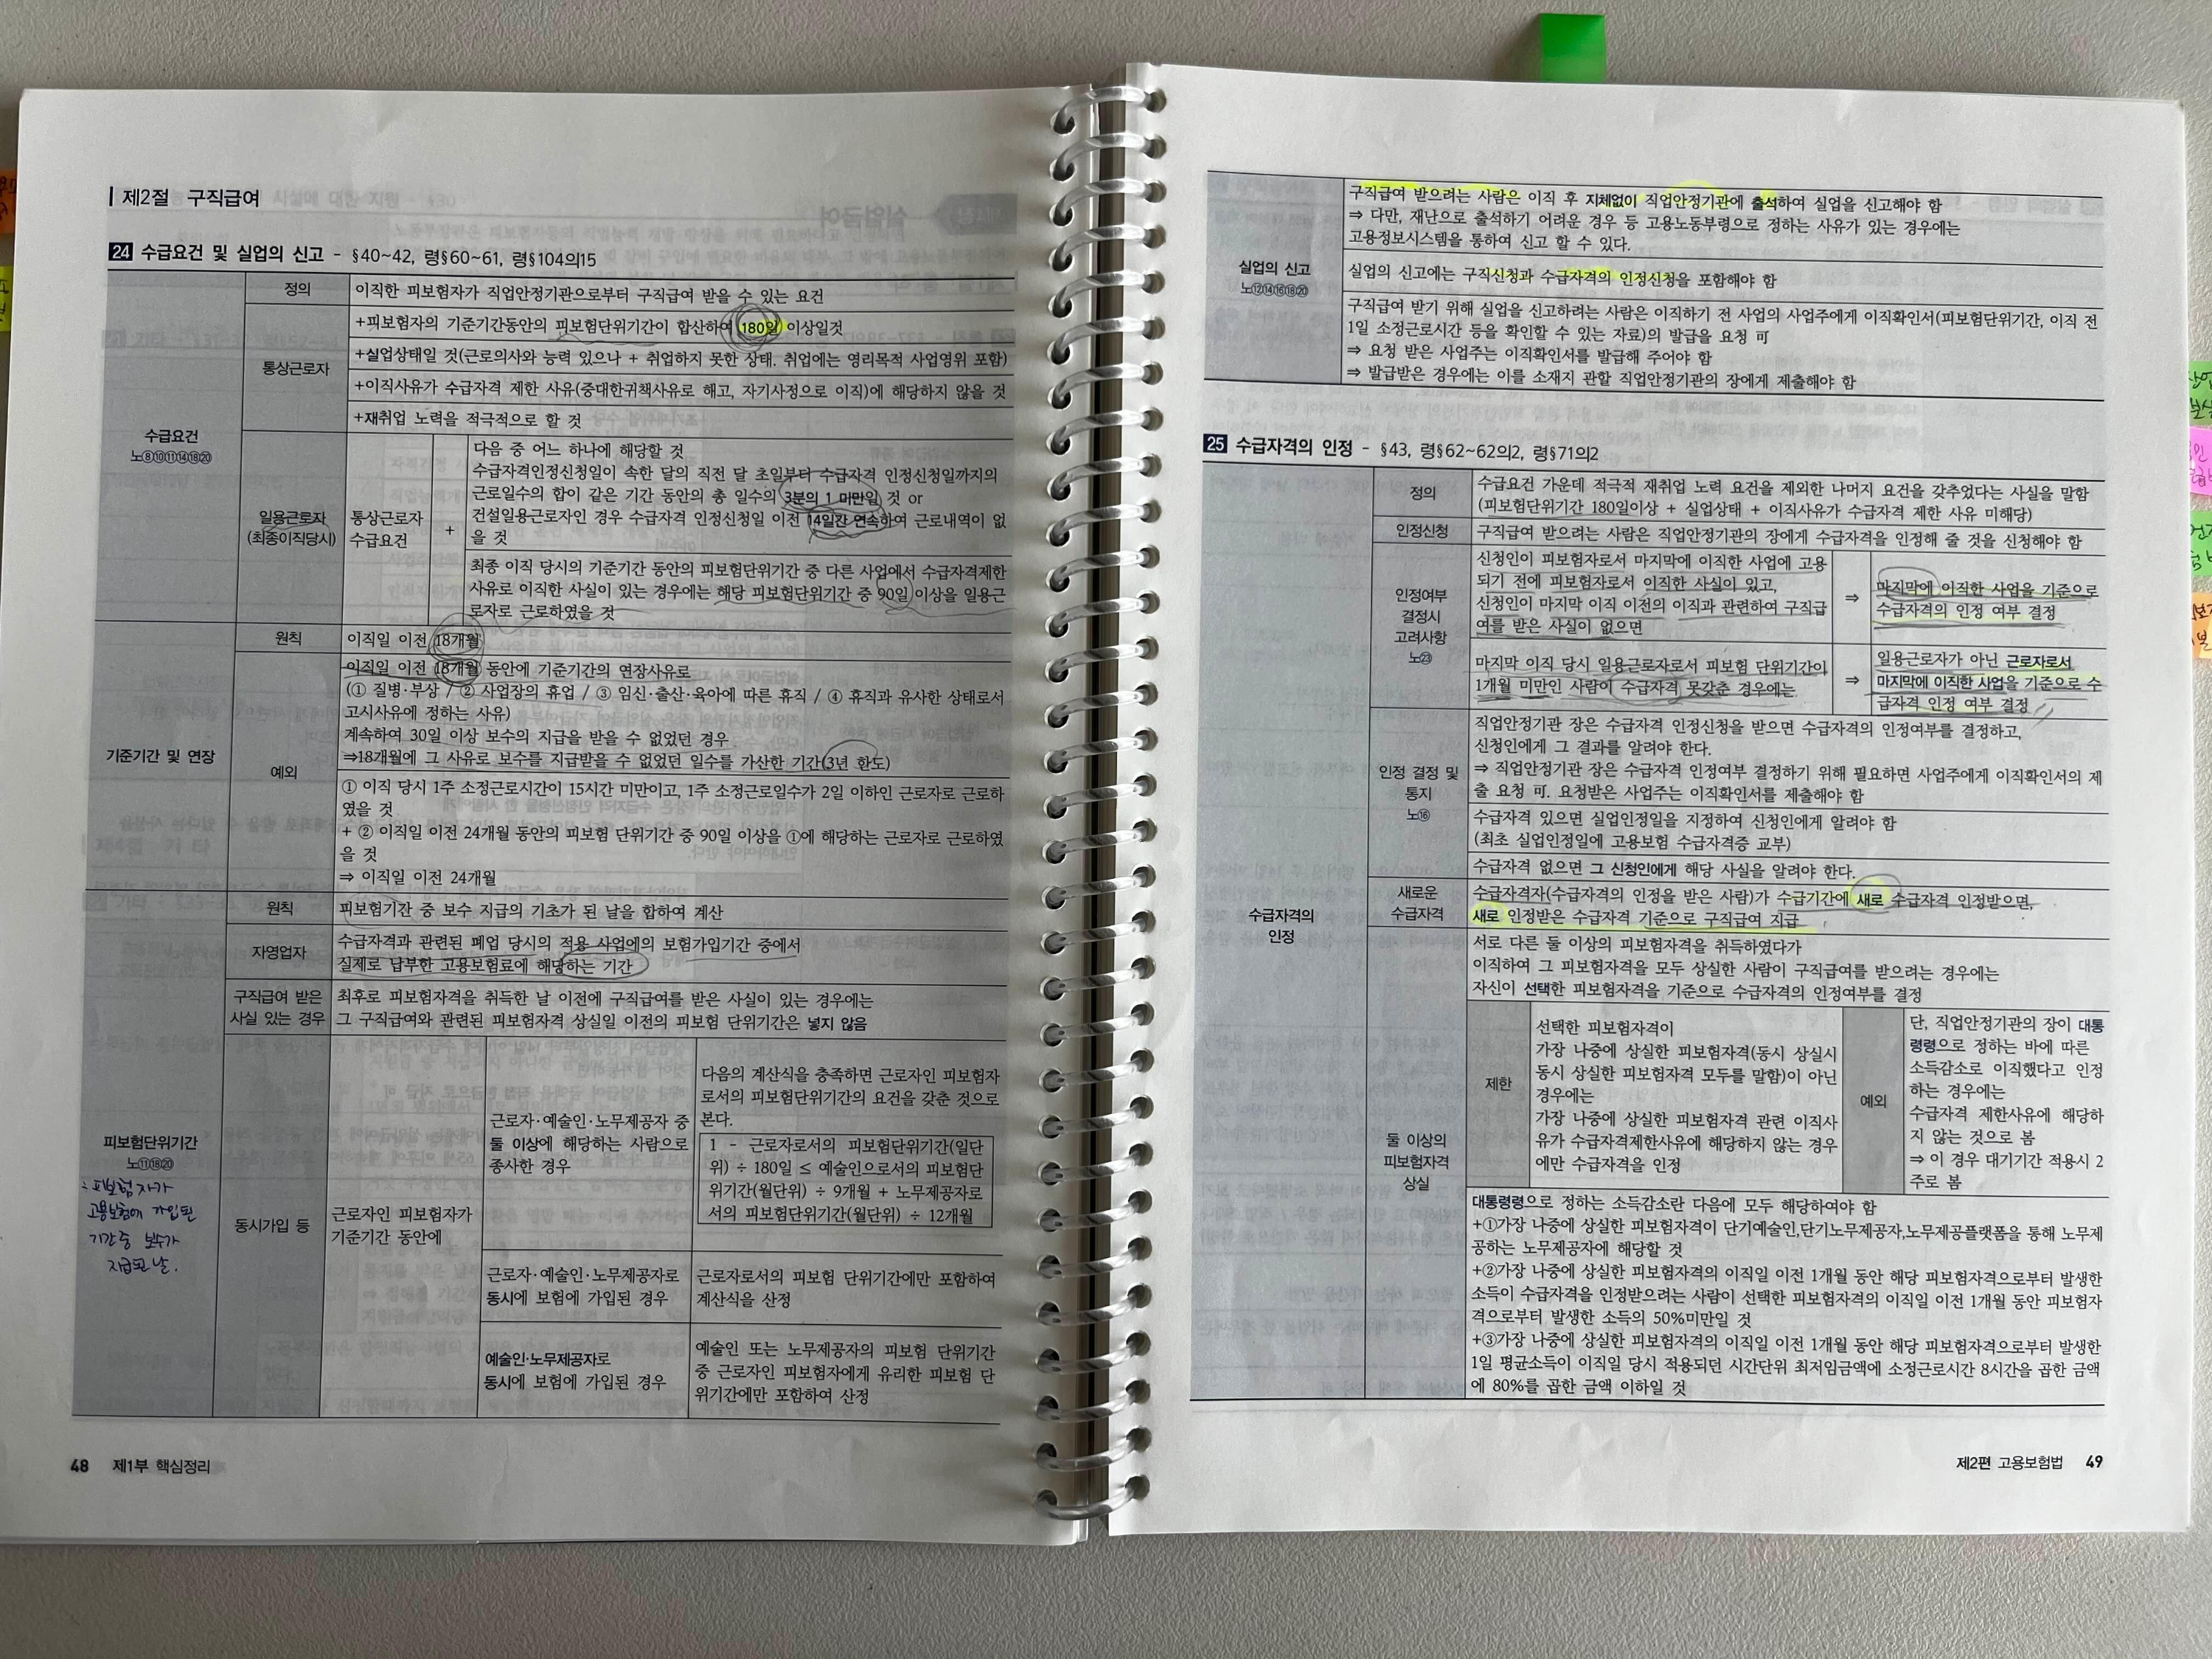 제2절 구직급여
24 수급요건 및 실업의 신고 - §40~42, 령§60~61, 령§104의15
수급요건
노⑧⑩⑪⑭⑱⑳
정의
이직한 피보험자가 직업안정기관으로부터 구직급여 받을 수 있는 요건
통상근로자
+피보험자의 기준기간동안의 피보험단위기간이 합산하여 180일 이상일것
+실업상태일 것(근로의사와 능력 있으나 + 취업하지 못한 상태. 취업에는 영리목적 사업영위 포함)
+이직사유가 수급자격 제한 사유(중대한귀책사유로 해고, 자기사정으로 이직)에 해당하지 않을 것
+재취업 노력을 적극적으로 할 것
일용근로자
(최종이직당시)
통상근로자
수급요건
+
다음 중 어느 하나에 해당할 것
수급자격인정신청일이 속한 달의 직전 달 초일부터 수급자격 인정신청일까지의
근로일수의 합이 같은 기간 동안의 총 일수의 3분의 1 미만일 것 or
건설일용근로자인 경우 수급자격 인정신청일 이전 14일간 연속하여 근로내역이 없
을 것
최종 이직 당시의 기준기간 동안의 피보험단위기간 중 다른 사업에서 수급자격제한
사유로 이직한 사실이 있는 경우에는 해당 피보험단위기간 중 90일 이상을 일용근
로자로 근로하였을 것
기준기간 및 연장
원칙
이직일 이전 18개월
예외
이직일 이전 18개월 동안에 기준기간의 연장사유로
(① 질병·부상 / ② 사업장의 휴업 / ③ 임신·출산·육아에 따른 휴직 / ④ 휴직과 유사한 상태로서
고시사유에 정하는 사유)
계속하여 30일 이상 보수의 지급을 받을 수 없었던 경우
⇒18개월에 그 사유로 보수를 지급받을 수 없었던 일수를 가산한 기간(3년 한도)
① 이직 당시 1주 소정근로시간이 15시간 미만이고, 1주 소정근로일수가 2일 이하인 근로자로 근로하
였을 것
+ ② 이직일 이전 24개월 동안의 피보험 단위기간 중 90일 이상을 ①에 해당하는 근로자로 근로하였
을 것
⇒ 이직일 이전 24개월
피보험단위기간
노⑪⑱⑳
∴피보험자가
고용보험에 가입된
기간중 보수가
지급된 날.
원칙
피보험기간 중 보수 지급의 기초가 된 날을 합하여 계산
자영업자
수급자격과 관련된 폐업 당시의 적용 사업에의 보험가입기간 중에서
실제로 납부한 고용보험료에 해당하는 기간
구직급여 받은
사실 있는 경우
최후로 피보험자격을 취득한 날 이전에 구직급여를 받은 사실이 있는 경우에는
그 구직급여와 관련된 피보험자격 상실일 이전의 피보험 단위기간은 넣지 않음
동시가입 등
근로자인 피보험자가
기준기간 동안에
근로자·예술인·노무제공자 중
둘 이상에 해당하는 사람으로
종사한 경우
다음의 계산식을 충족하면 근로자인 피보험자
로서의 피보험단위기간의 요건을 갖춘 것으로
본다.
1 - 근로자로서의 피보험단위기간(일단
위) ÷ 180일 ≤ 예술인으로서의 피보험단
위기간(월단위) ÷ 9개월 + 노무제공자로
서의 피보험단위기간(월단위) ÷ 12개월
근로자·예술인·노무제공자로
동시에 보험에 가입된 경우
근로자로서의 피보험 단위기간에만 포함하여
계산식을 산정
예술인·노무제공자로
동시에 보험에 가입된 경우
예술인 또는 노무제공자의 피보험 단위기간
중 근로자인 피보험자에게 유리한 피보험 단
위기간에만 포함하여 산정
48 제1부 핵심정리
실업의 신고
노⑫⑭⑯⑱⑳
구직급여 받으려는 사람은 이직 후 지체없이 직업안정기관에 출석하여 실업을 신고해야 함
⇒ 다만, 재난으로 출석하기 어려운 경우 등 고용노동부령으로 정하는 사유가 있는 경우에는
고용정보시스템을 통하여 신고 할 수 있다.
실업의 신고에는 구직신청과 수급자격의 인정신청을 포함해야 함
구직급여 받기 위해 실업을 신고하려는 사람은 이직하기 전 사업의 사업주에게 이직확인서(피보험단위기간, 이직 전
1일 소정근로시간 등을 확인할 수 있는 자료)의 발급을 요청 可
⇒ 요청 받은 사업주는 이직확인서를 발급해 주어야 함
⇒ 발급받은 경우에는 이를 소재지 관할 직업안정기관의 장에게 제출해야 함
25 수급자격의 인정 - §43, 령§62~62의2, 령§71의2
수급자격의
인정
정의
수급요건 가운데 적극적 재취업 노력 요건을 제외한 나머지 요건을 갖추었다는 사실을 말함
(피보험단위기간 180일이상 + 실업상태 + 이직사유가 수급자격 제한 사유 미해당)
인정신청
구직급여 받으려는 사람은 직업안정기관의 장에게 수급자격을 인정해 줄 것을 신청해야 함
인정여부
결정시
고려사항
노㉓
신청인이 피보험자로서 마지막에 이직한 사업에 고용
되기 전에 피보험자로서 이직한 사실이 있고,
신청인이 마지막 이직 이전의 이직과 관련하여 구직급
여를 받은 사실이 없으면
⇒
마지막에 이직한 사업을 기준으로
수급자격의 인정 여부 결정
마지막 이직 당시 일용근로자로서 피보험 단위기간이
1개월 미만인 사람이 수급자격 못갖춘 경우에는
⇒
일용근로자가 아닌 근로자로서
마지막에 이직한 사업을 기준으로 수
급자격 인정 여부 결정
인정 결정 및
통지
노⑯
직업안정기관 장은 수급자격 인정신청을 받으면 수급자격의 인정여부를 결정하고,
신청인에게 그 결과를 알려야 한다.
⇒ 직업안정기관 장은 수급자격 인정여부 결정하기 위해 필요하면 사업주에게 이직확인서의 제
출 요청 可. 요청받은 사업주는 이직확인서를 제출해야 함
수급자격 있으면 실업인정일을 지정하여 신청인에게 알려야 함
(최초 실업인정일에 고용보험 수급자격증 교부)
수급자격 없으면 그 신청인에게 해당 사실을 알려야 한다.
새로운
수급자격
수급자격자(수급자격의 인정을 받은 사람)가 수급기간에 새로 수급자격 인정받으면,
새로 인정받은 수급자격 기준으로 구직급여 지급
둘 이상의
피보험자격
상실
서로 다른 둘 이상의 피보험자격을 취득하였다가
이직하여 그 피보험자격을 모두 상실한 사람이 구직급여를 받으려는 경우에는
자신이 선택한 피보험자격을 기준으로 수급자격의 인정여부를 결정
제한
선택한 피보험자격이
가장 나중에 상실한 피보험자격(동시 상실시
동시 상실한 피보험자격 모두를 말함)이 아닌
경우에는
가장 나중에 상실한 피보험자격 관련 이직사
유가 수급자격제한사유에 해당하지 않는 경우
에만 수급자격을 인정
예외
단, 직업안정기관의 장이 대통
령령으로 정하는 바에 따른
소득감소로 이직했다고 인정
하는 경우에는
수급자격 제한사유에 해당하
지 않는 것으로 봄
⇒ 이 경우 대기기간 적용시 2
주로 봄
대통령령으로 정하는 소득감소란 다음에 모두 해당하여야 함
+①가장 나중에 상실한 피보험자격이 단기예술인,단기노무제공자,노무제공플랫폼을 통해 노무제
공하는 노무제공자에 해당할 것
+②가장 나중에 상실한 피보험자격의 이직일 이전 1개월 동안 해당 피보험자격으로부터 발생한
소득이 수급자격을 인정받으려는 사람이 선택한 피보험자격의 이직일 이전 1개월 동안 피보험자
격으로부터 발생한 소득의 50%미만일 것
+③가장 나중에 상실한 피보험자격의 이직일 이전 1개월 동안 해당 피보험자격으로부터 발생한
1일 평균소득이 이직일 당시 적용되던 시간단위 최저임금액에 소정근로시간 8시간을 곱한 금액
에 80%를 곱한 금액 이하일 것
제2편 고용보험법 49